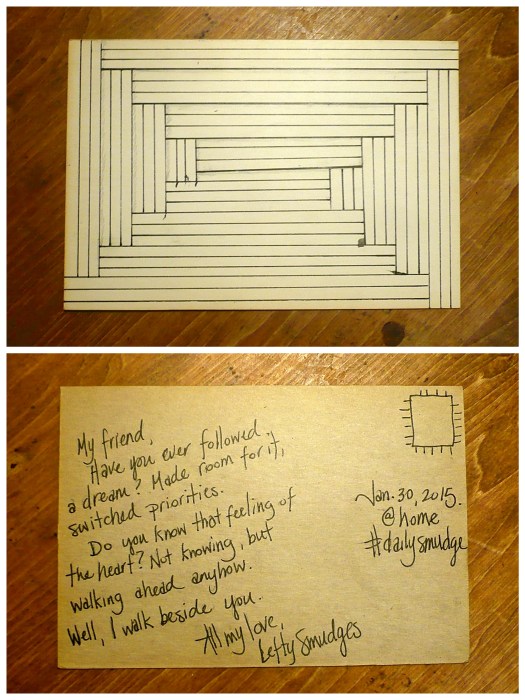 My friend,
Have you ever followed
a dream? Made room for it,
switched priorities.
Do you know that feeling of
the heart? Not knowing, but
walking ahead anyhow.
Well, I walk beside you.
All my love,
Lefty Smudges
Jan. 30, 2015.
@home
#dailysmudge